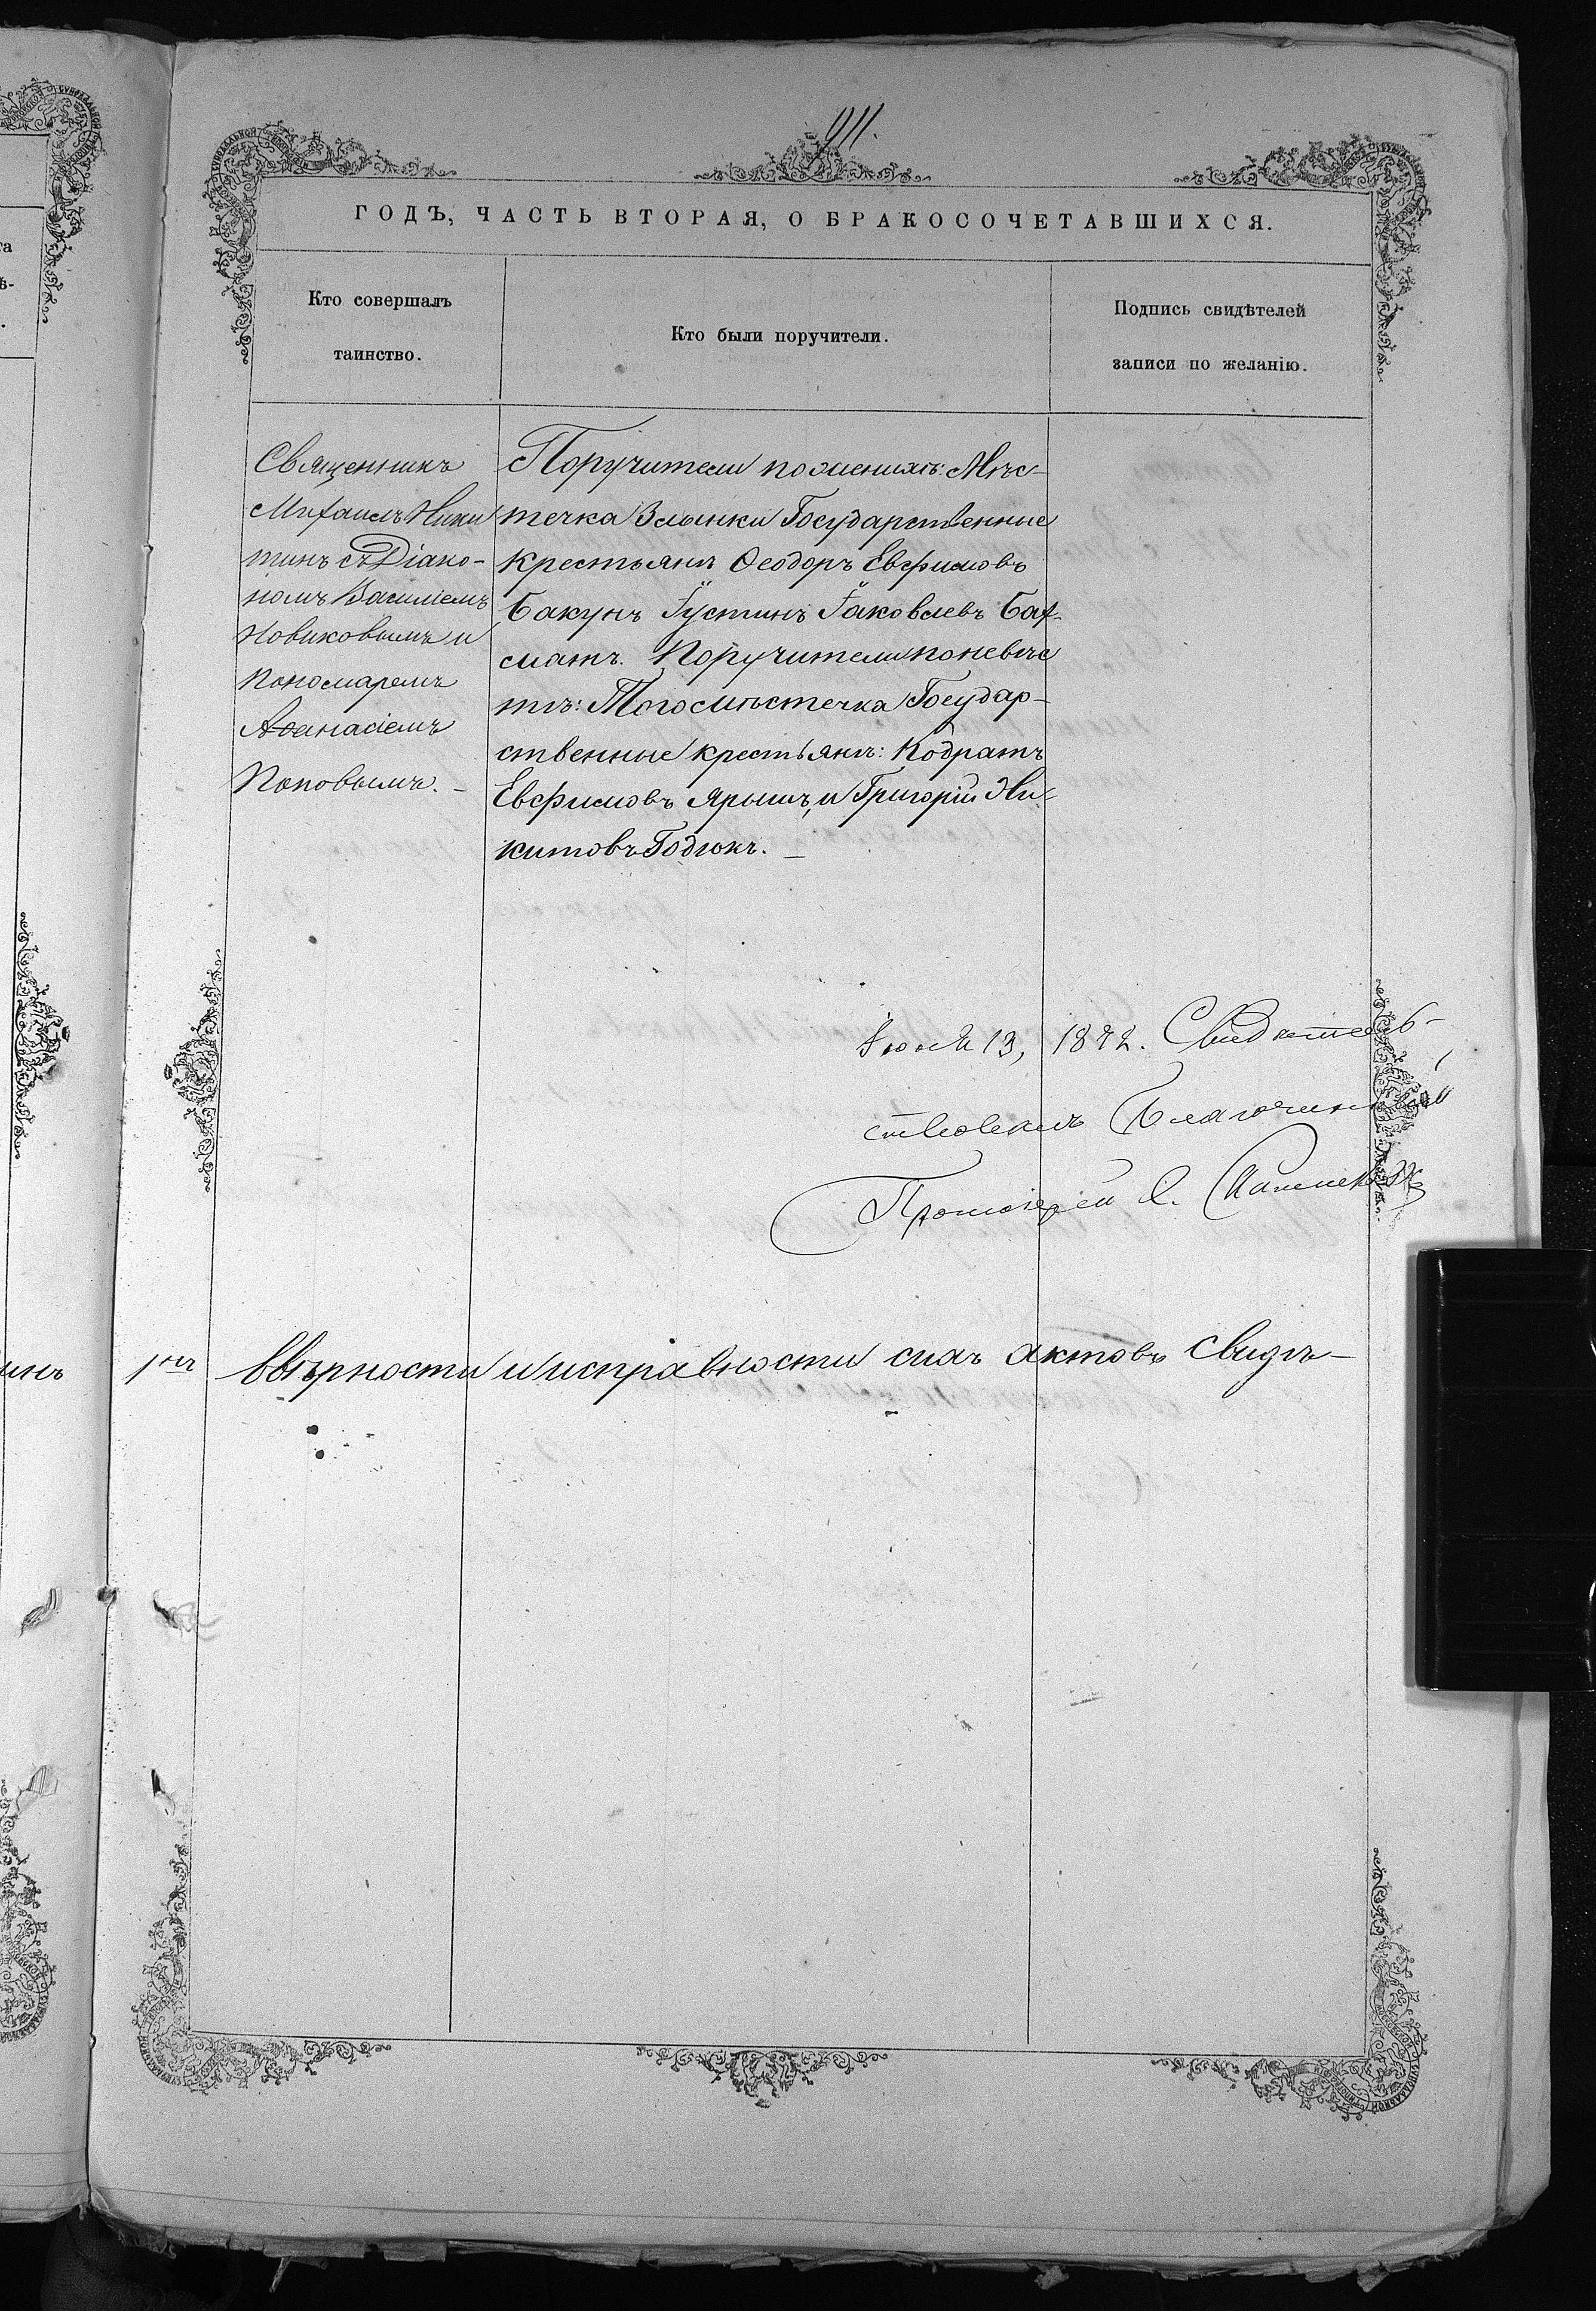 911.
ГОДЪ, ЧАСТЬ ВТОРАЯ, О БРАКОСОЧЕТАВШИХСЯ.
Кто совершалъ
таинство.
Кто были поручители.
Подпись свидѣтелей
записи по желанію.
Священникъ
Михаилъ Ники
тинъ съ Діако-
номъ Василіемъ
Новиковымъ и
Пономаремъ
Аѳанасіемъ
Поповымъ. –
Поручители по женихѣ: Мѣс-
течка Злынки Государственные
крестьянѣ Ѳеодоръ Евфимовъ
Бакунъ Іустинъ Іаковлевъ Бах-
сматъ. Поручители по невѣс
тѣ: Того мѣстечка Государ-
ственные крестьянѣ: Кодратъ
Евфимовъ Ярышъ, и Григорій Ни-
китовъ Годюкъ. –
Іюля 13, 1872. Свидѣтель-
ствовалъ Благочинный
Протоіерей
инъ 1нъ
ввѣрности и исправности сихъ актовъ свидѣ-